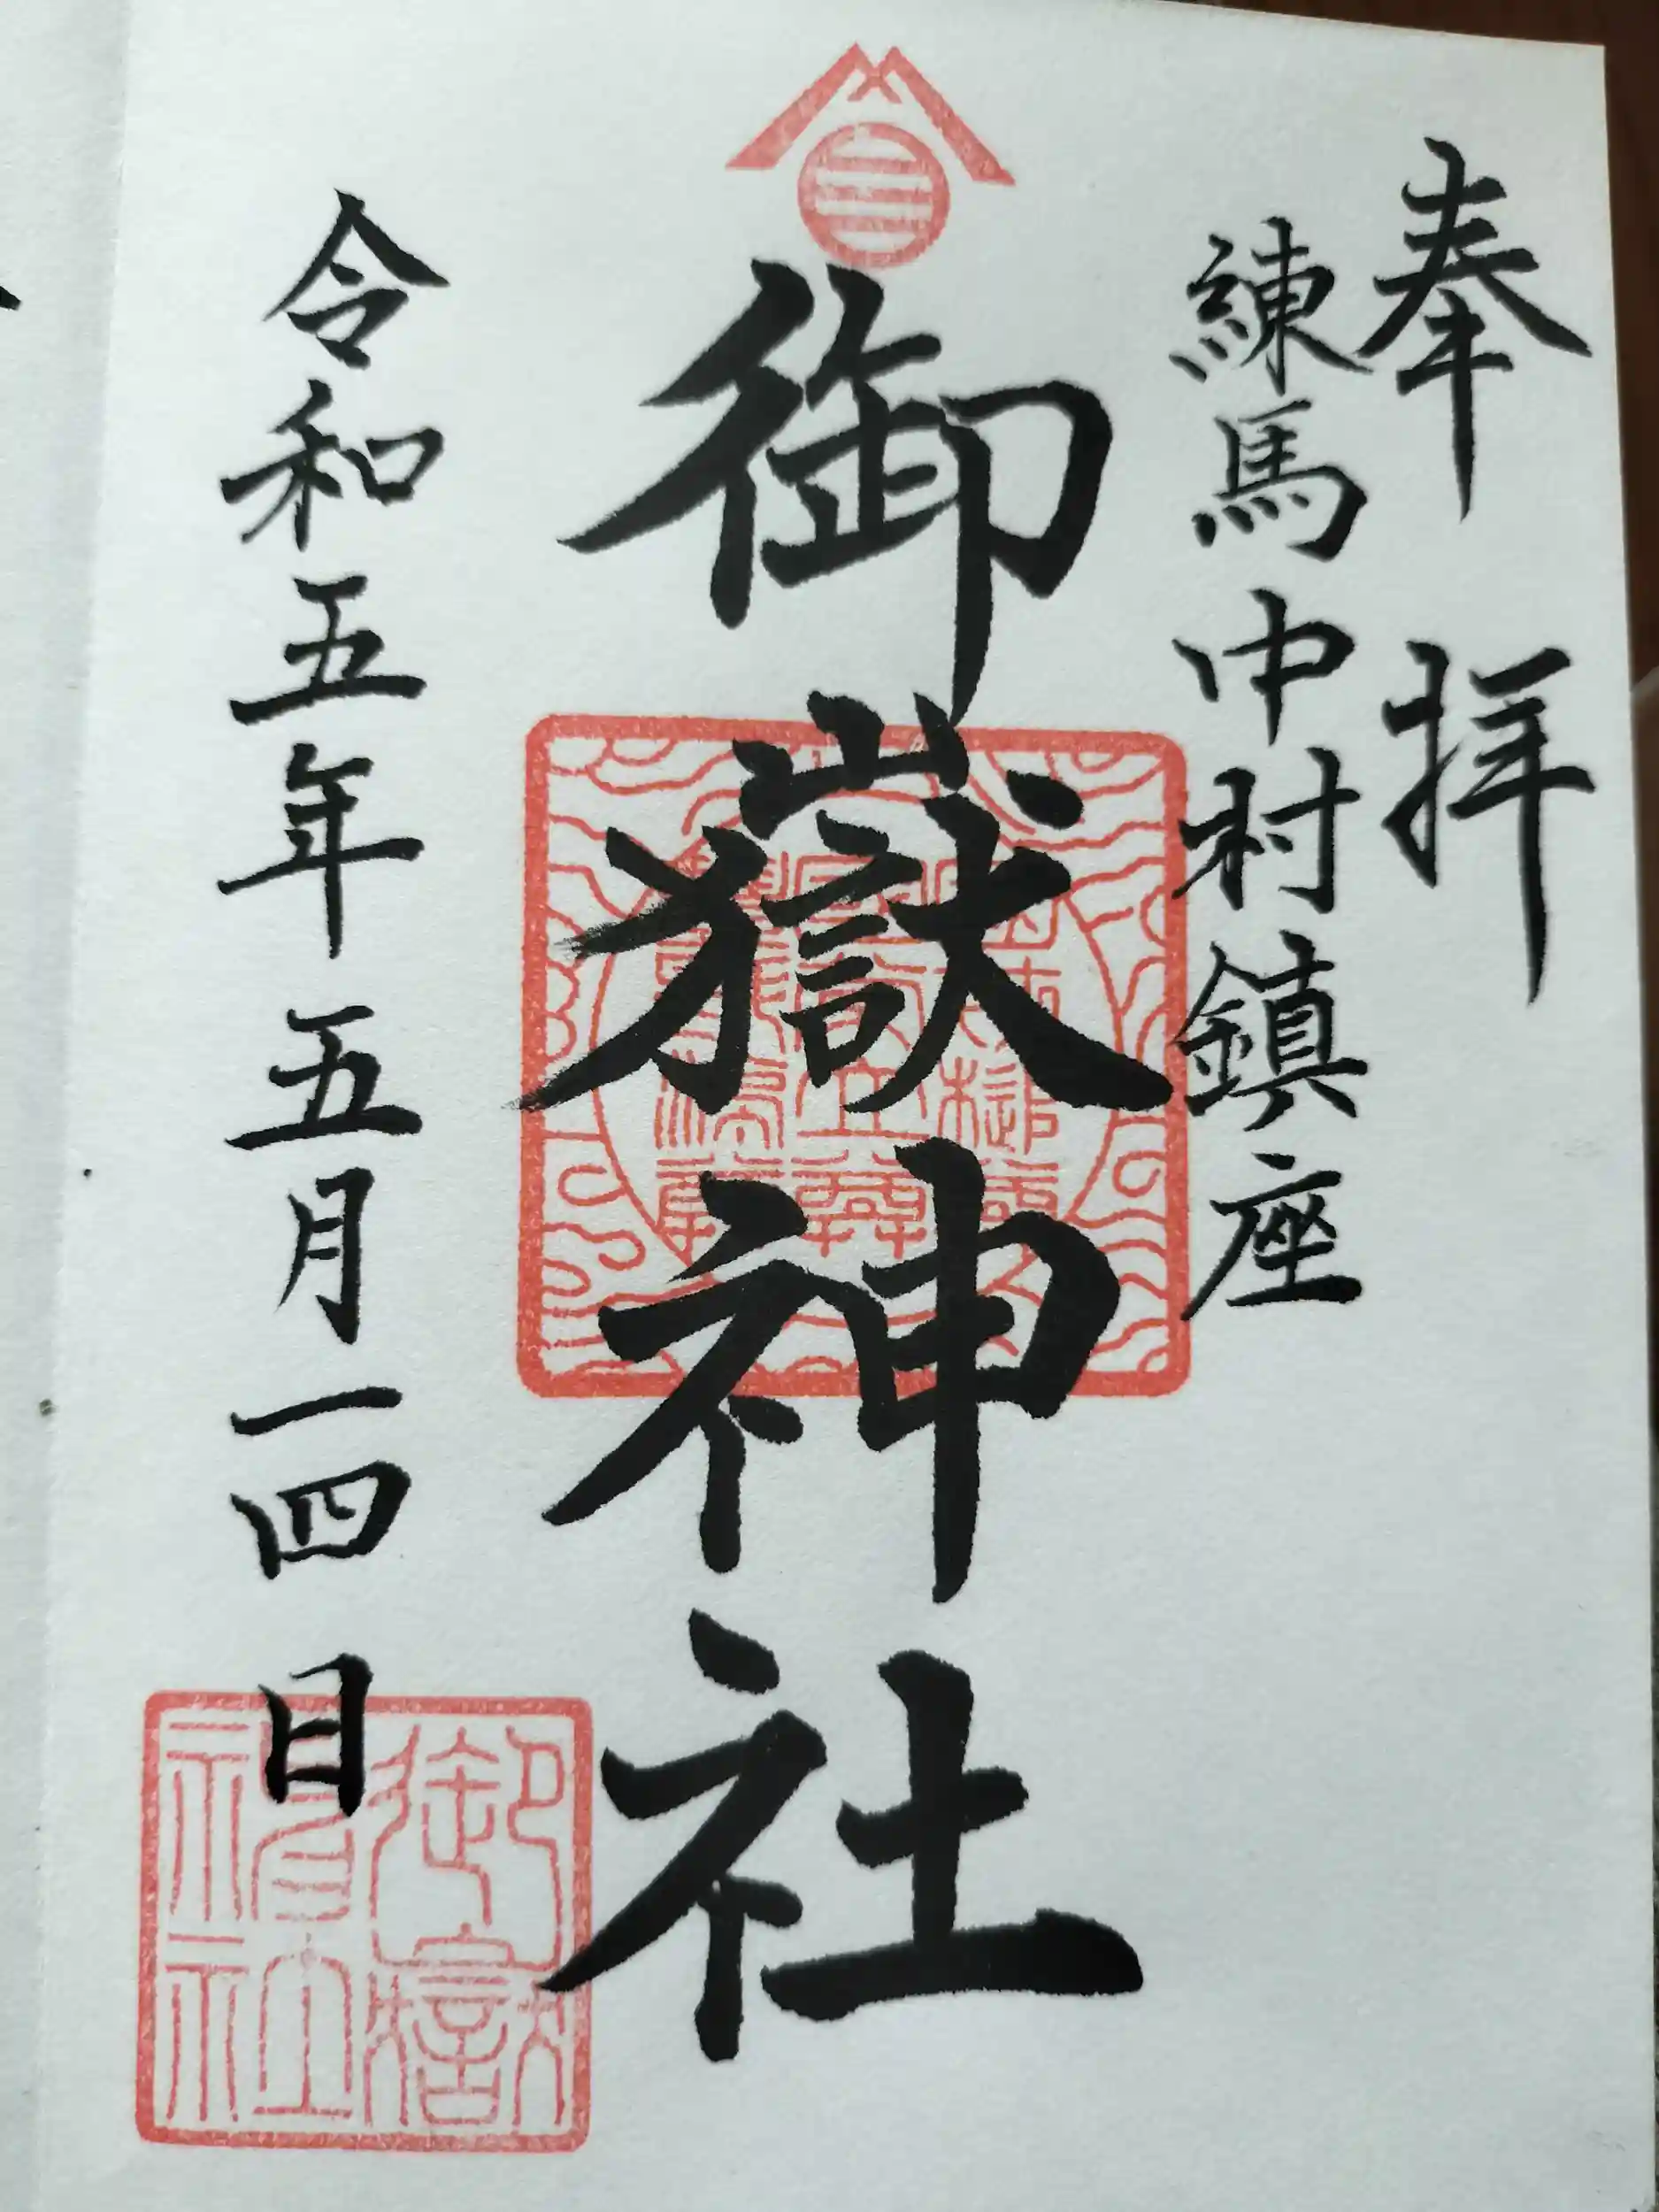 奉拝
練馬中村鎮座
御嶽神社
令和五年五月一四日
御嶽
神社